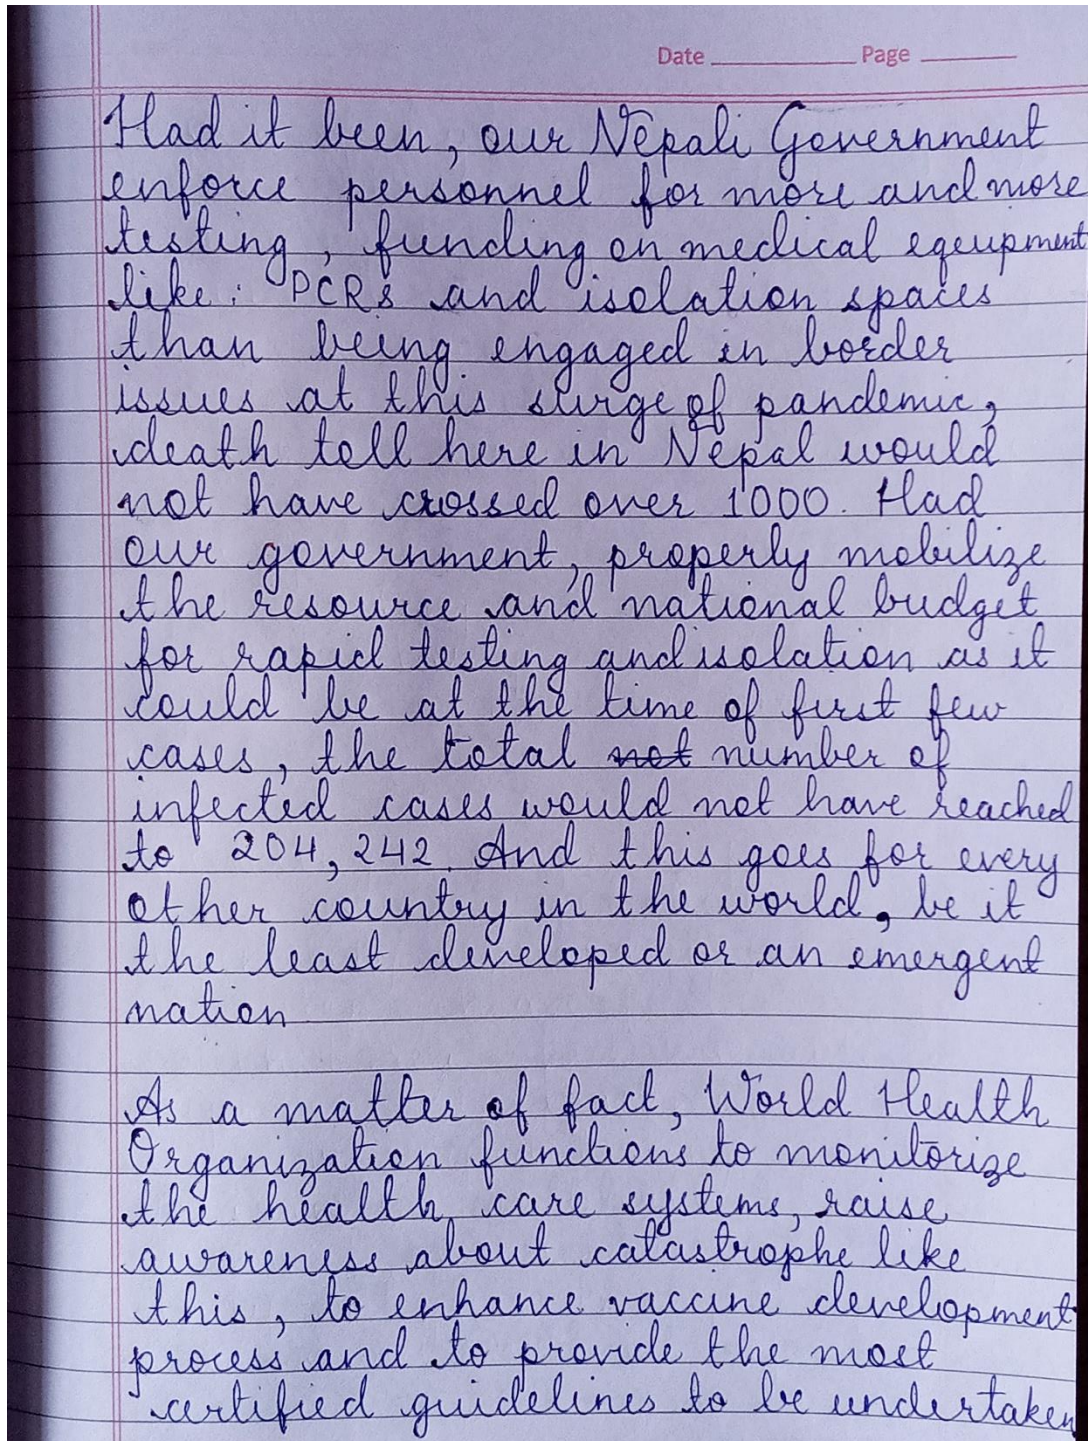 Date Page
Had it been, our Nepali Government
enforce personnel for more and more
testing, funding on medical equipment
like: PCRs and isolation spaces
than being engaged in border
issues at this surge of pandemic,
death toll here in Nepal would
not have crossed over 1000. Had
our government, properly mobilize
the resource and national budget
for rapid testing and isolation as it
could be at the time of first few
cases, the total not number of
infected cases would not have reached
to 204,242. And this goes for every
other country in the world, be it
the least developed or an emergent
nation
As a matter of fact, World Health
Organization functions to monitorize
the health care systems, raise
awareness about catastrophe like
this, to enhance vaccine development
process and to provide the most
certified guidelines to be undertaken